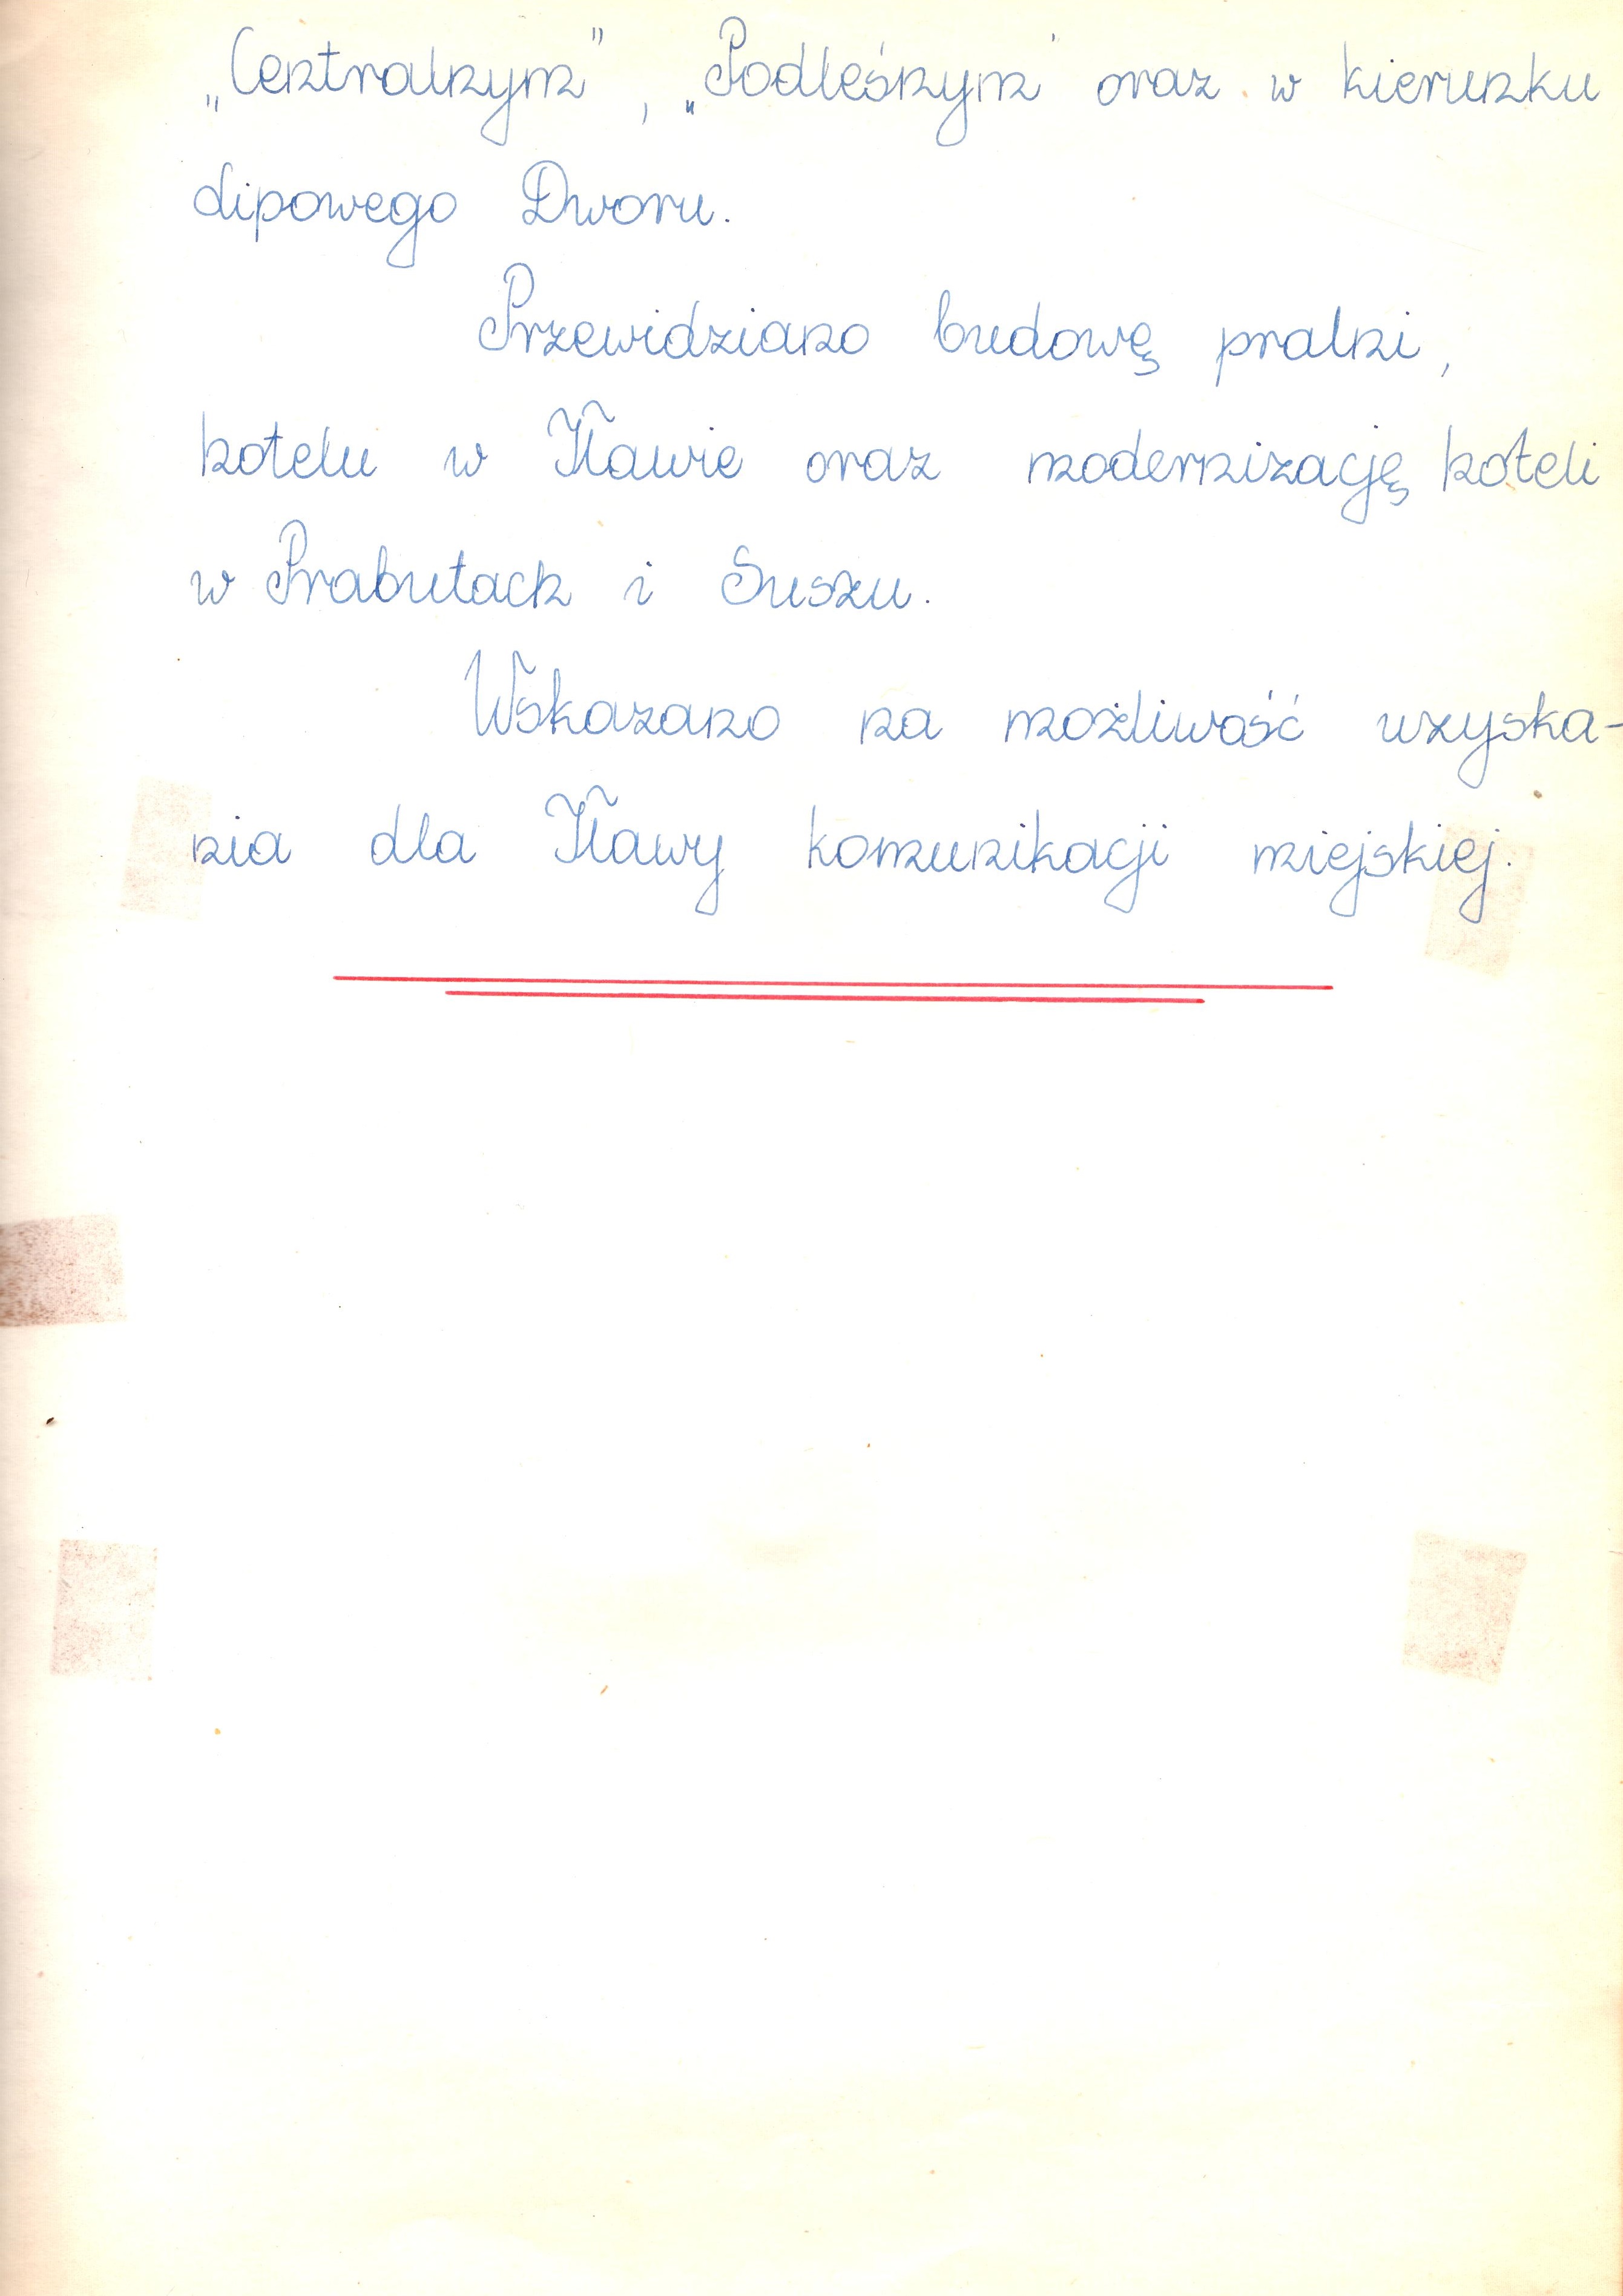 „Centralnym”, „Podleśnym” oraz w kierunku
Lipowego Dworu.
Przewidziano budowę pralni,
hotelu w Iławie oraz modernizację hoteli
w Prabutach i Suszu.
Wskazano na możliwość uzyska-
nia dla Iławy komunikacji miejskiej.